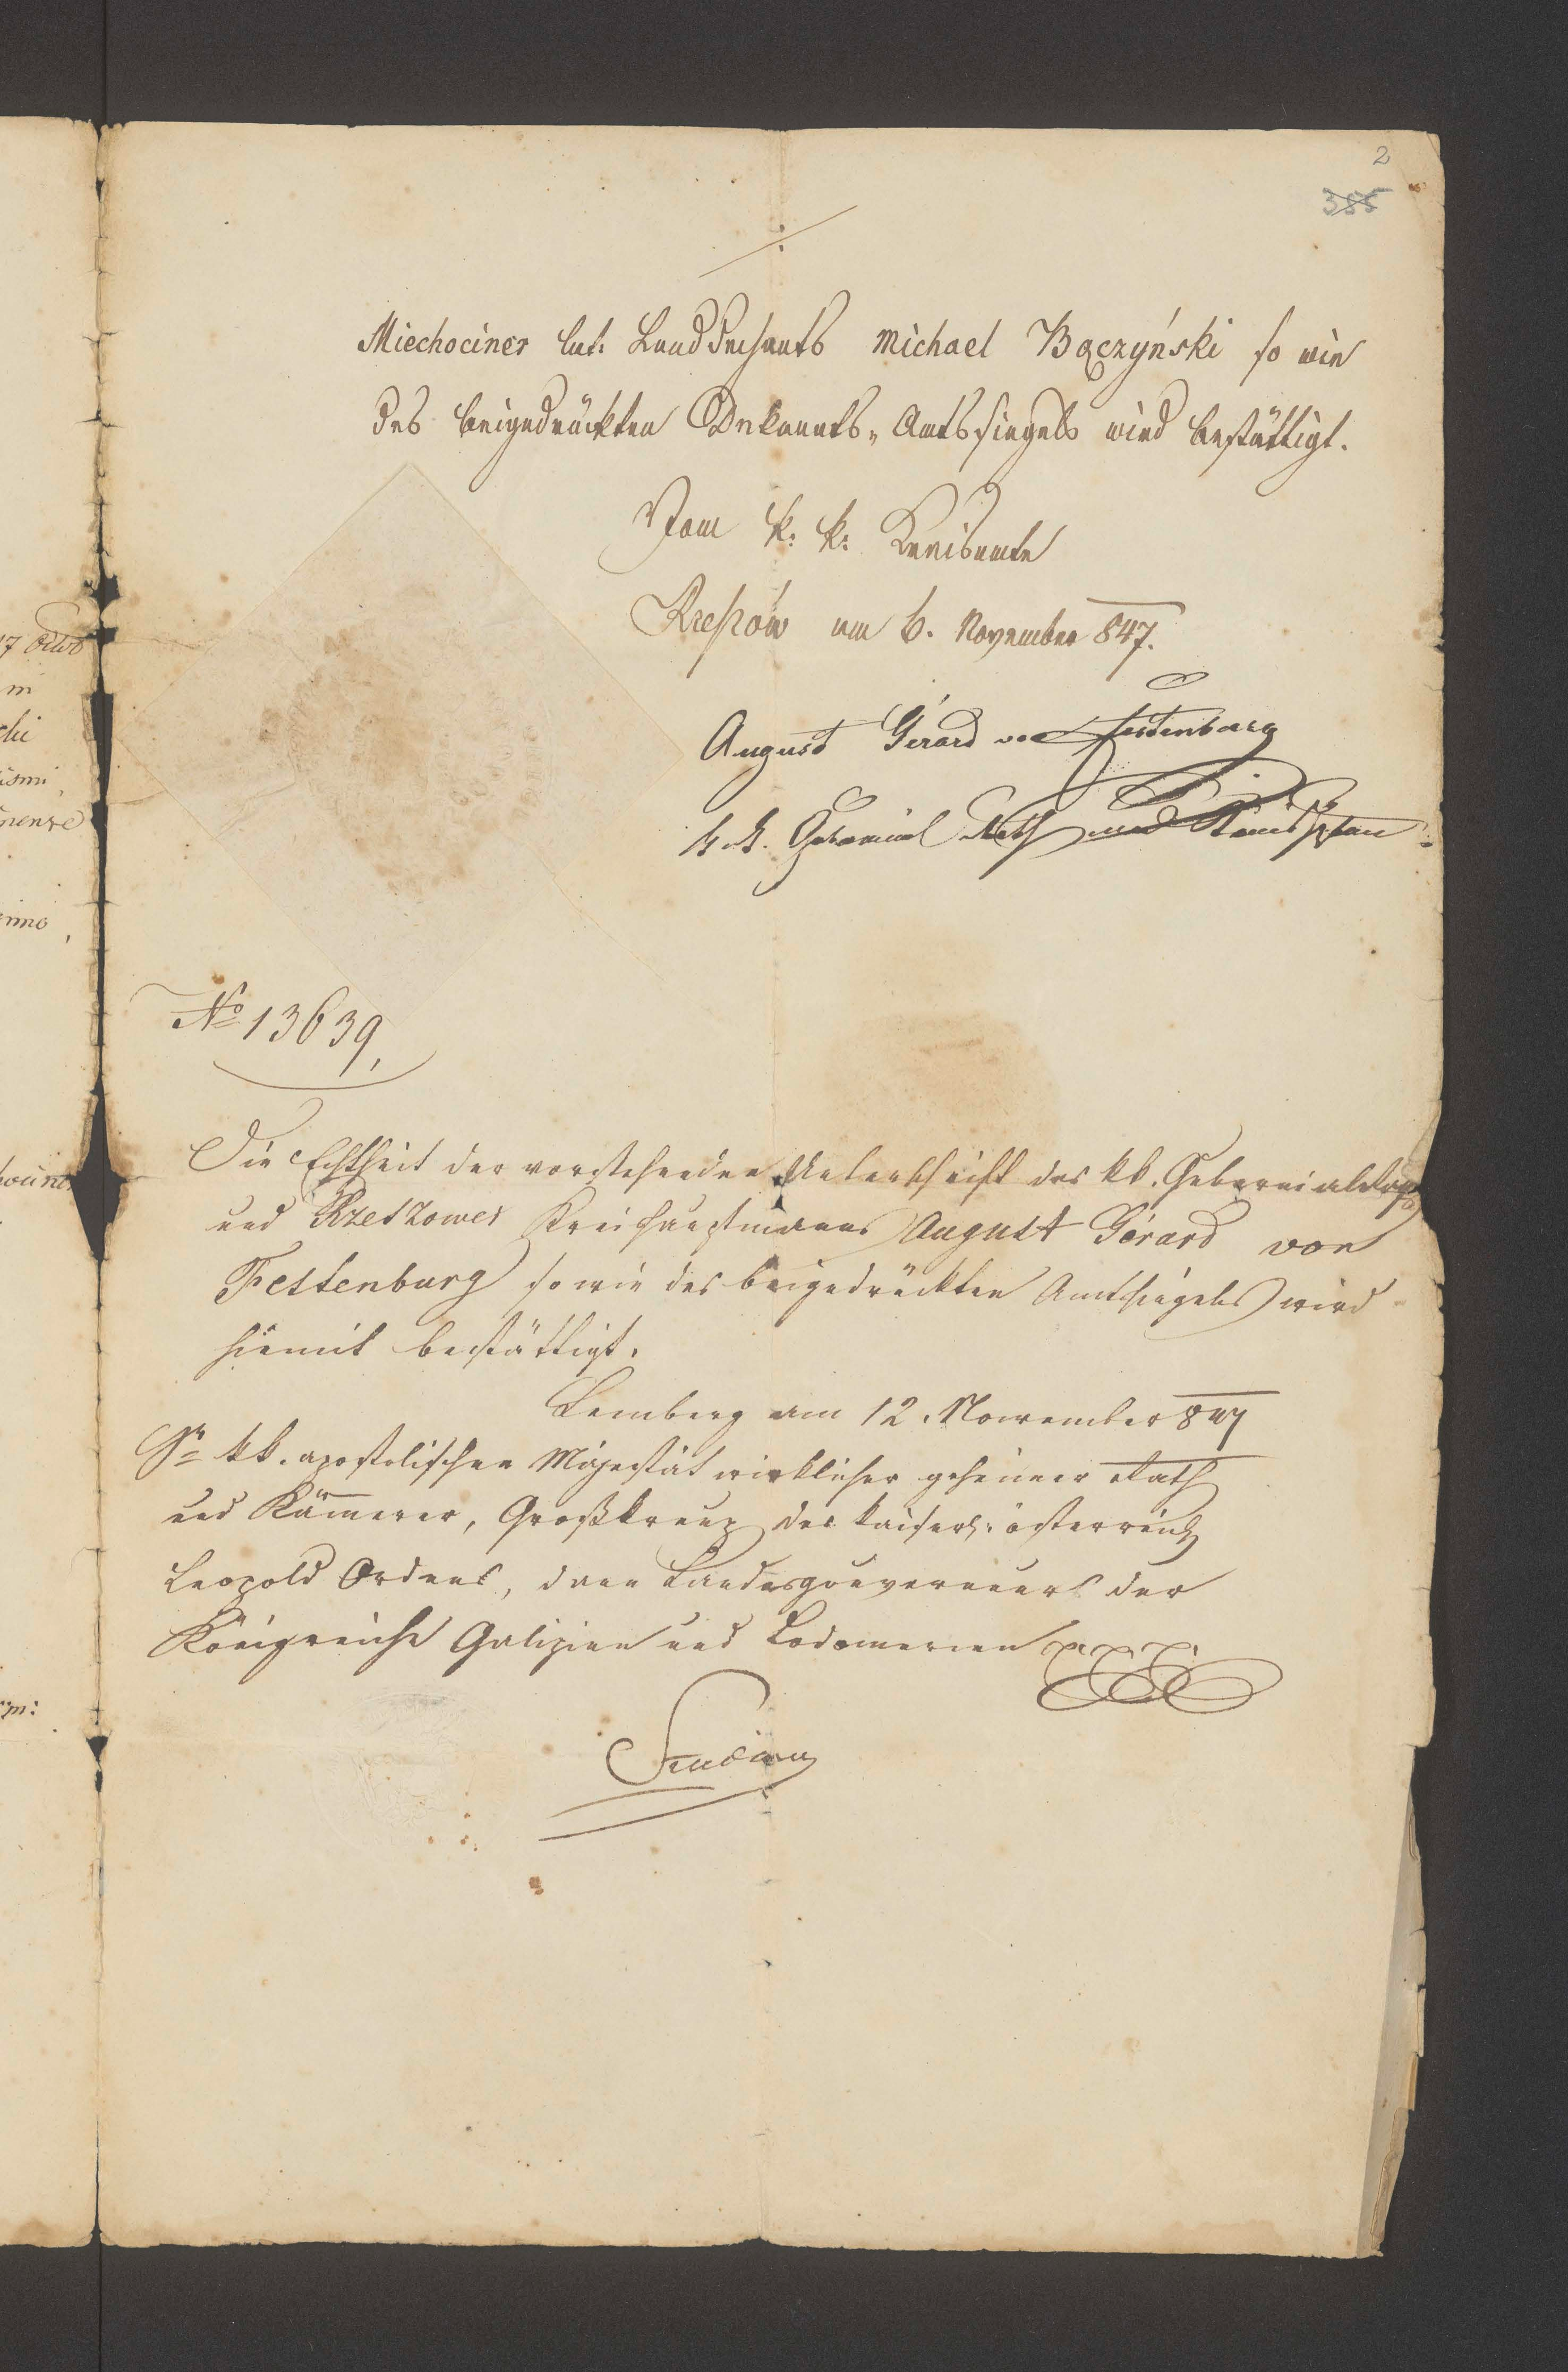 2
355
./.
Miechociner lat: Landdechants Michael Bączyński so wie
des beigedrückten Dekanats-Amtssiegels wird bestättigt.
Vom k: k: Kreisamte
Rzeszów am 6. November 847.
August Gérard von Festenburg
k. k. Gubernial Rath und Kreishptm
No 13639,
Die Echtheit der vorstehenden Unterschrift des kk. Gubernialraths
und Rzeszower Kreishauptmanns August Gérard von
Festenburg so wie des beigedrückten Amtssiegels wird
hiemit bestättigt.
Lemberg am 12. November 847
Sr kk. apostolischen Majestät wirklicher geheimer Rath
und Kämmerer, Großkreuz des kaiserl: österreich
Leopold Ordens, dann Landesgouverneurs der
Königreiche Galizien und Lodomerien
17
mi
ismi,
simo,
m: